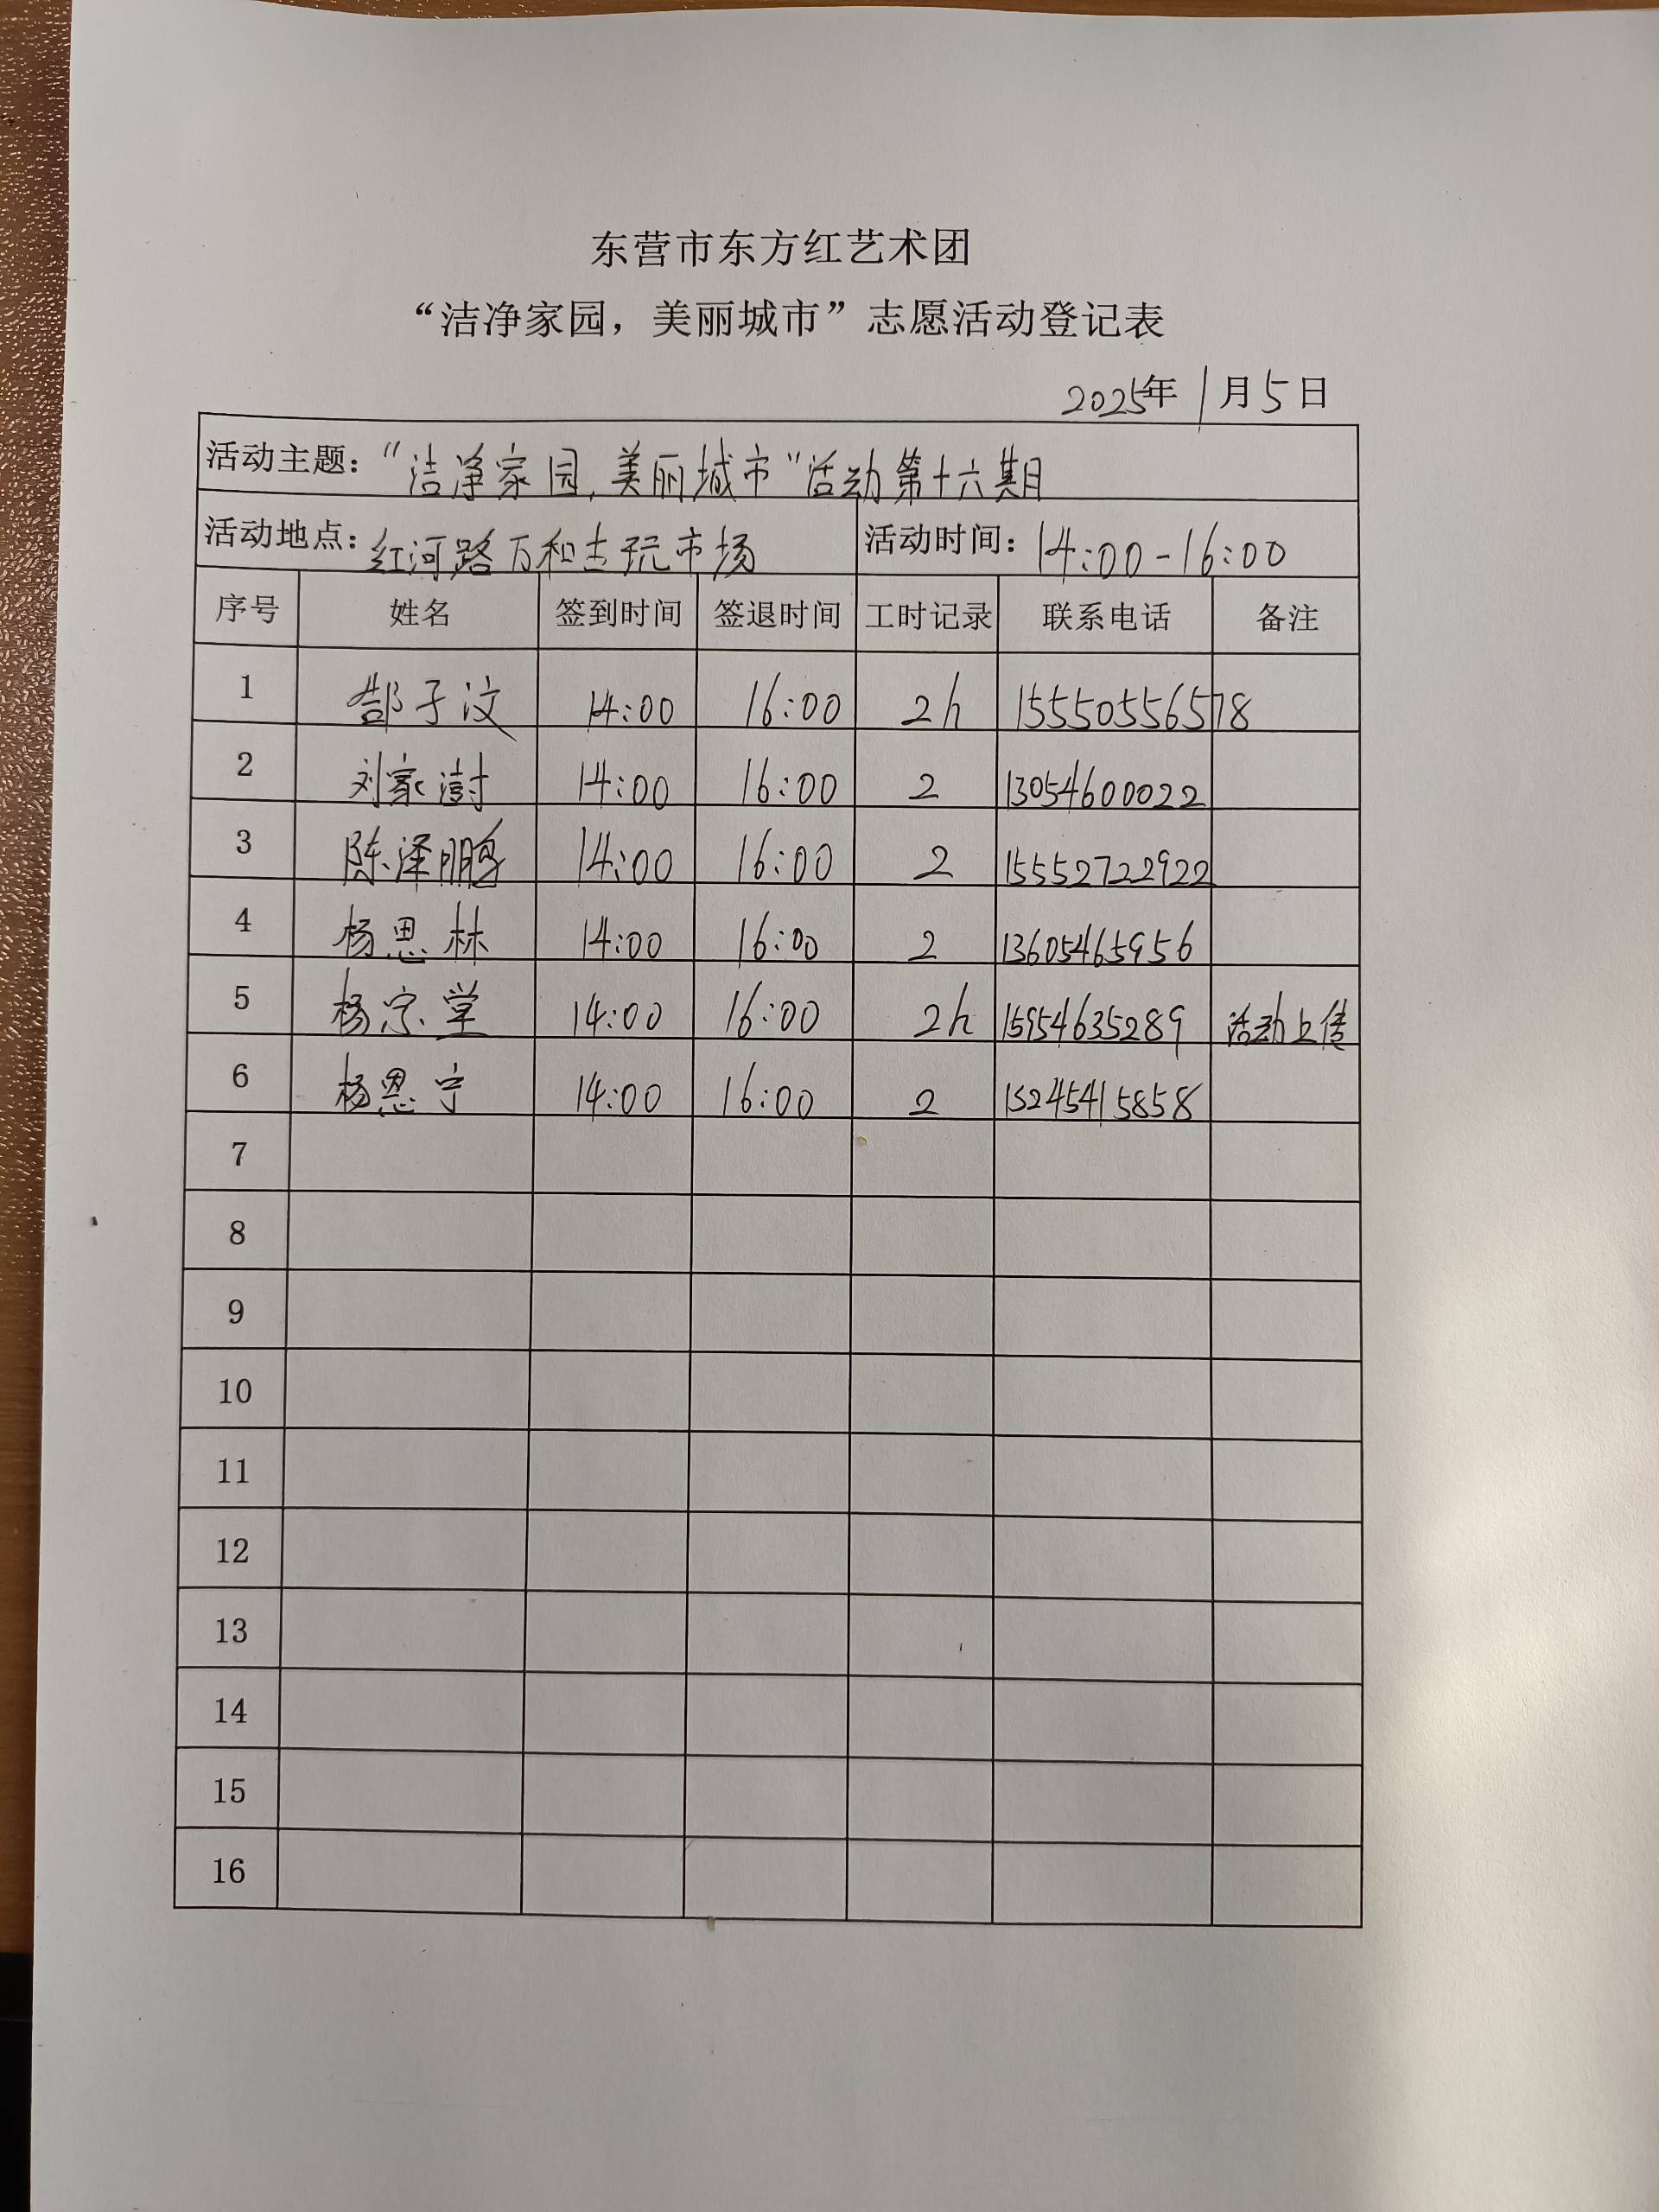 东营市东方红艺术团
“洁净家园，美丽城市”志愿活动登记表
2025年 1月5日
活动主题：“洁净家园,美丽城市”活动第十六期
活动地点：红河路万和古玩市场 活动时间：14:00-16:00
序号 姓名 签到时间 签退时间 工时记录 联系电话 备注
1 郜子汶 14:00 16:00 2h 15550556578
2 刘家澍 14:00 16:00 2 13054600022
3 陈泽鹏 14:00 16:00 2 15552722922
4 杨恩林 14:00 16:00 2 13605465956
5 杨宗堂 14:00 16:00 2h 15954635289 活动上传
6 杨恩宁 14:00 16:00 2 15245415858
7
8
9
10
11
12
13
14
15
16